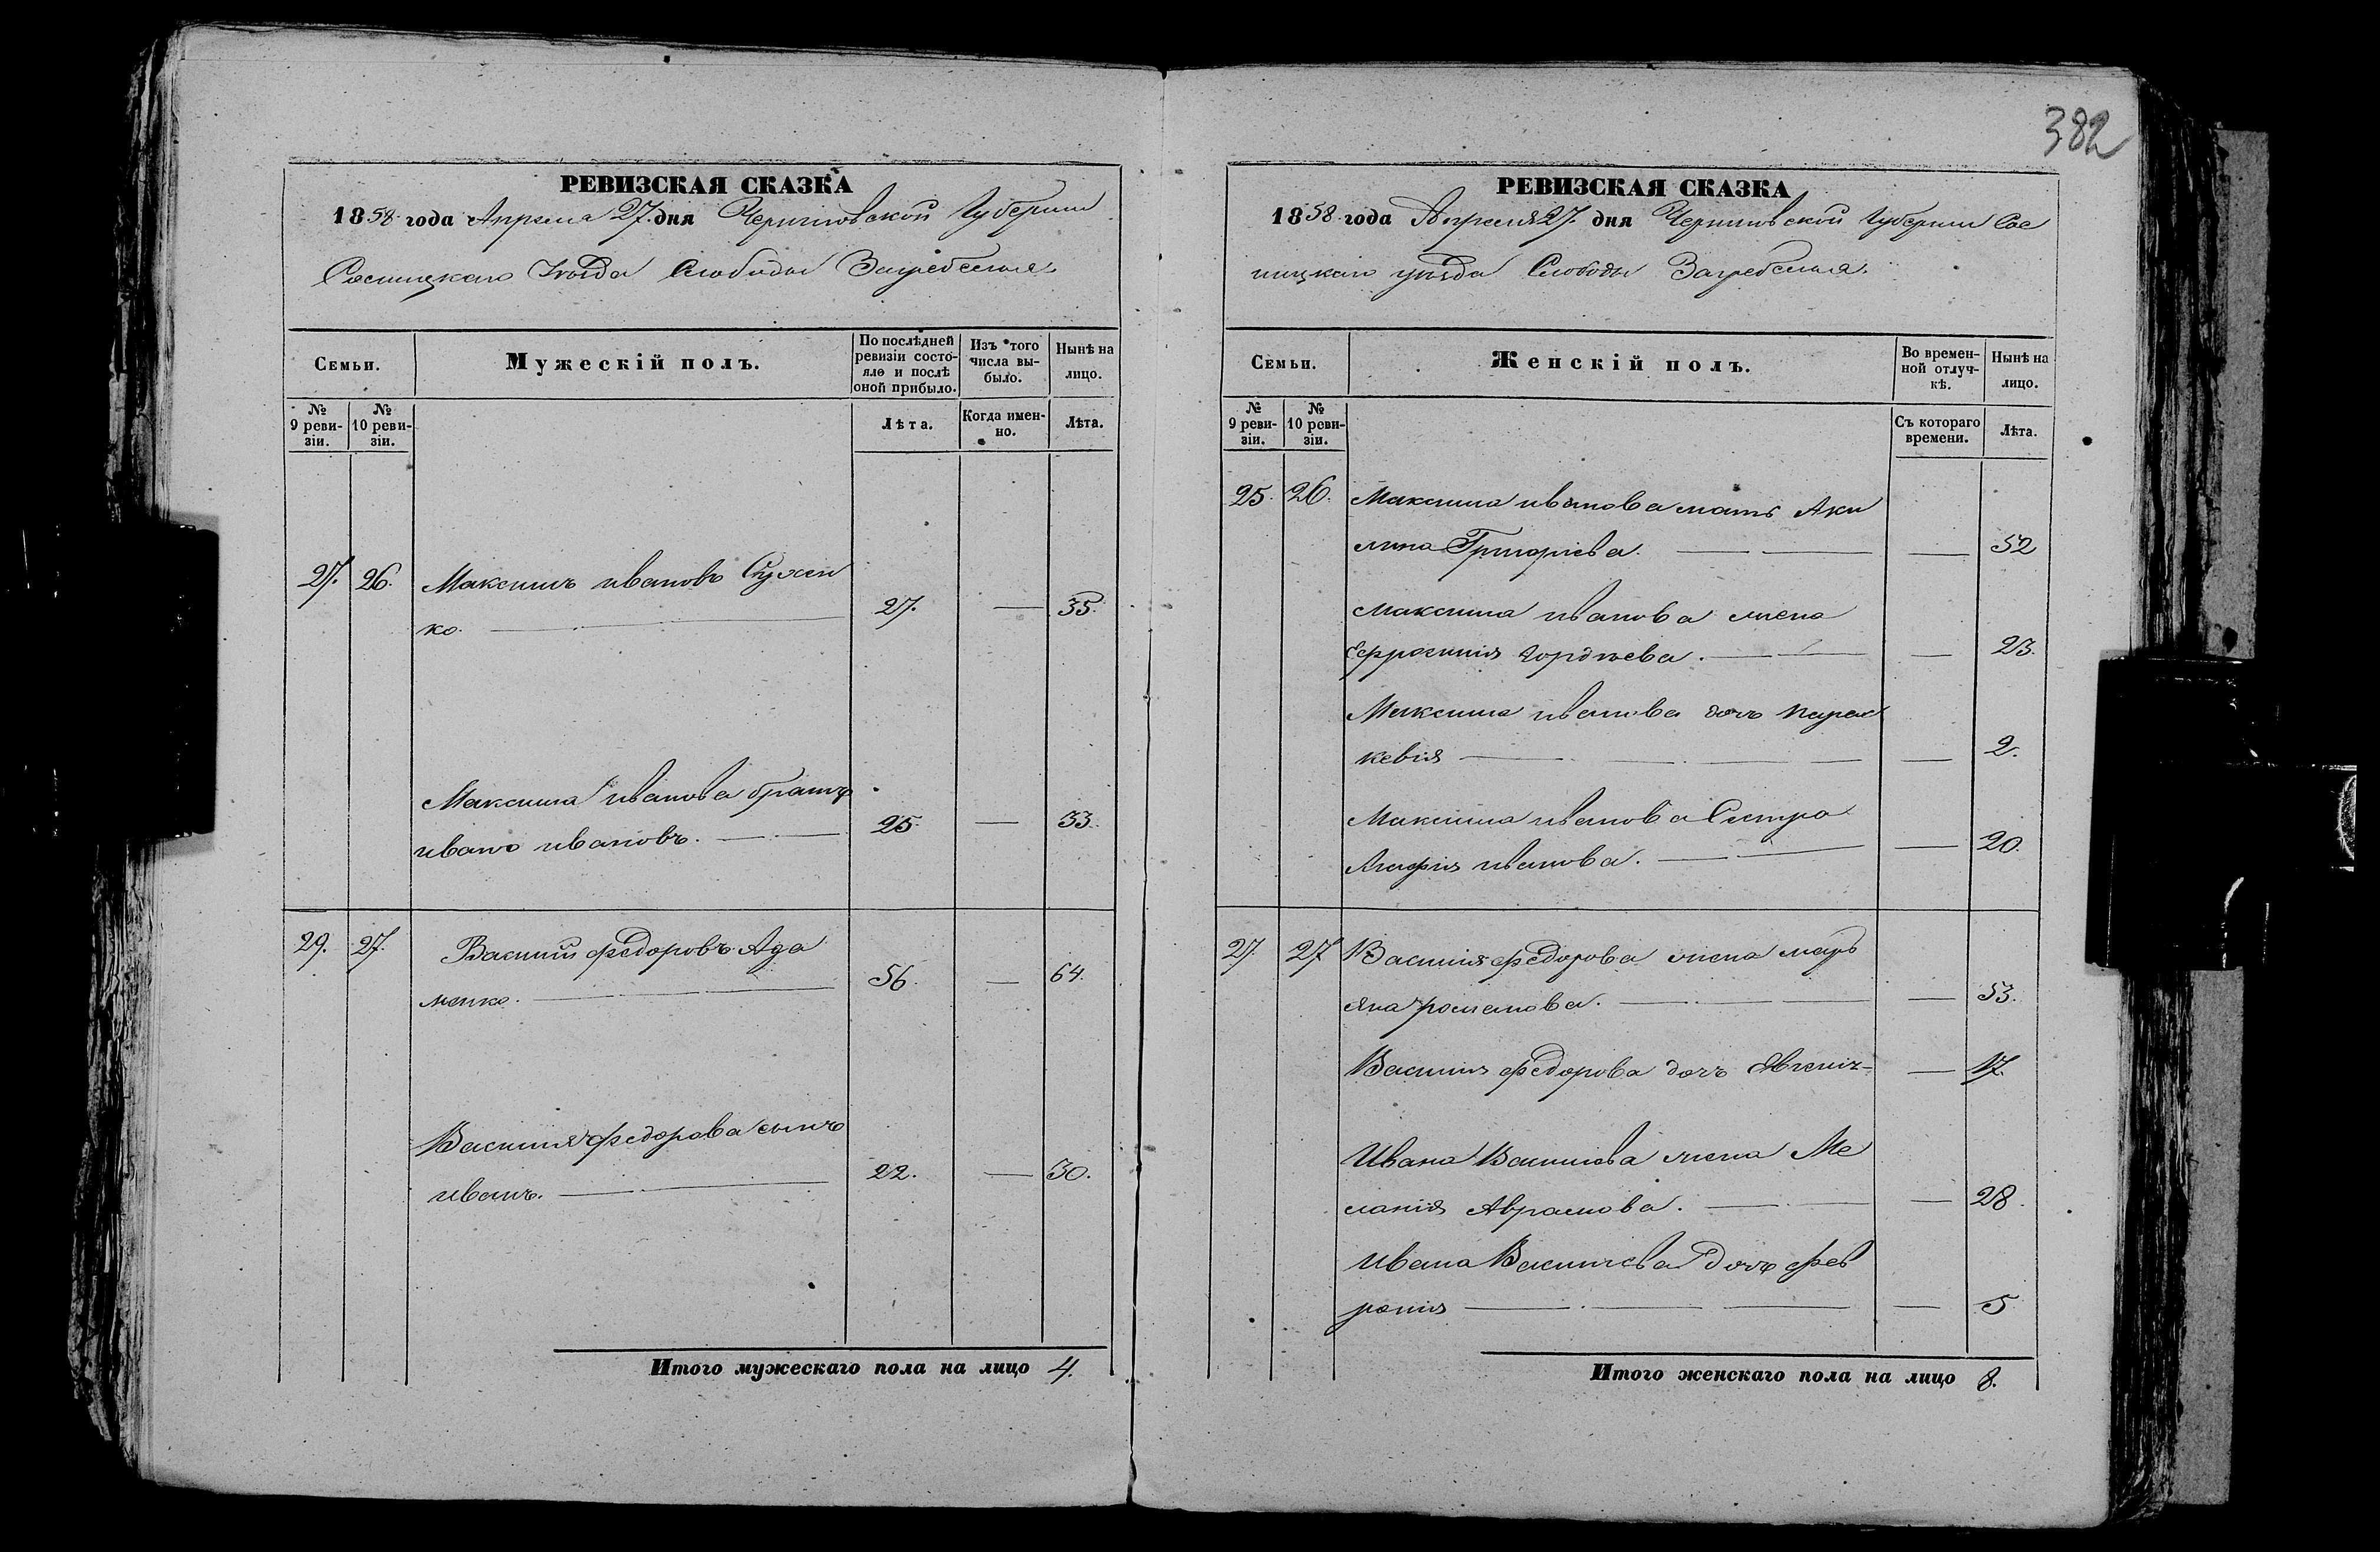 382
РЕВИЗСКАЯ СКАЗКА
1858 года Апреля 27. дня Черниговской Губернии
Сосницкаго Уезда Слободы Загребелья
Семьи.
Мужескій полъ.
По послѣдней ревизіи состояло и послѣ оной прибыло.
Изъ того числа выбыло.
Нынѣ на лицо.
№ 9 ревизіи.
№ 10 ревизіи.
Лѣта.
Когда именно.
Лѣта.
27. 26. Максимъ ивановъ
ко. 27. — 35.
Максима иванова братъ
иванъ ивановъ. 25. — 33.
29. 27. Василий федоровъ Ада
менко. 56. — 64.
Василия федорова сынъ
иванъ. 22. — 30.
Итого мужескаго пола на лицо 4.
РЕВИЗСКАЯ СКАЗКА
1858 года Апреля 27. дня Черниговской Губернии Сос
ницкаго уезда Слободы Загребелья.
Семьи.
Женскій полъ.
Во временной отлучкѣ.
Нынѣ на лицо.
№ 9 ревизіи.
№ 10 ревизіи.
Съ котораго времени.
Лѣта.
25. 26. Максима иванова мать Аки
лина Григориева. — 52
Максима иванова жена
Ефросиния гордѣева. — 23.
Максима иванова дочь парас
кевия — 2.
Максима иванова Сестра
Агафия иванова. — 20.
27. 27 Василия федорова жена марь
яна романова. — 53.
Василия федорова дочь — 17.
Ивана Василиева жена Ме
лания Аврамова. — 28.
Ивана Василиева дочь фев
рония — 5
Итого женскаго пола на лицо 8.